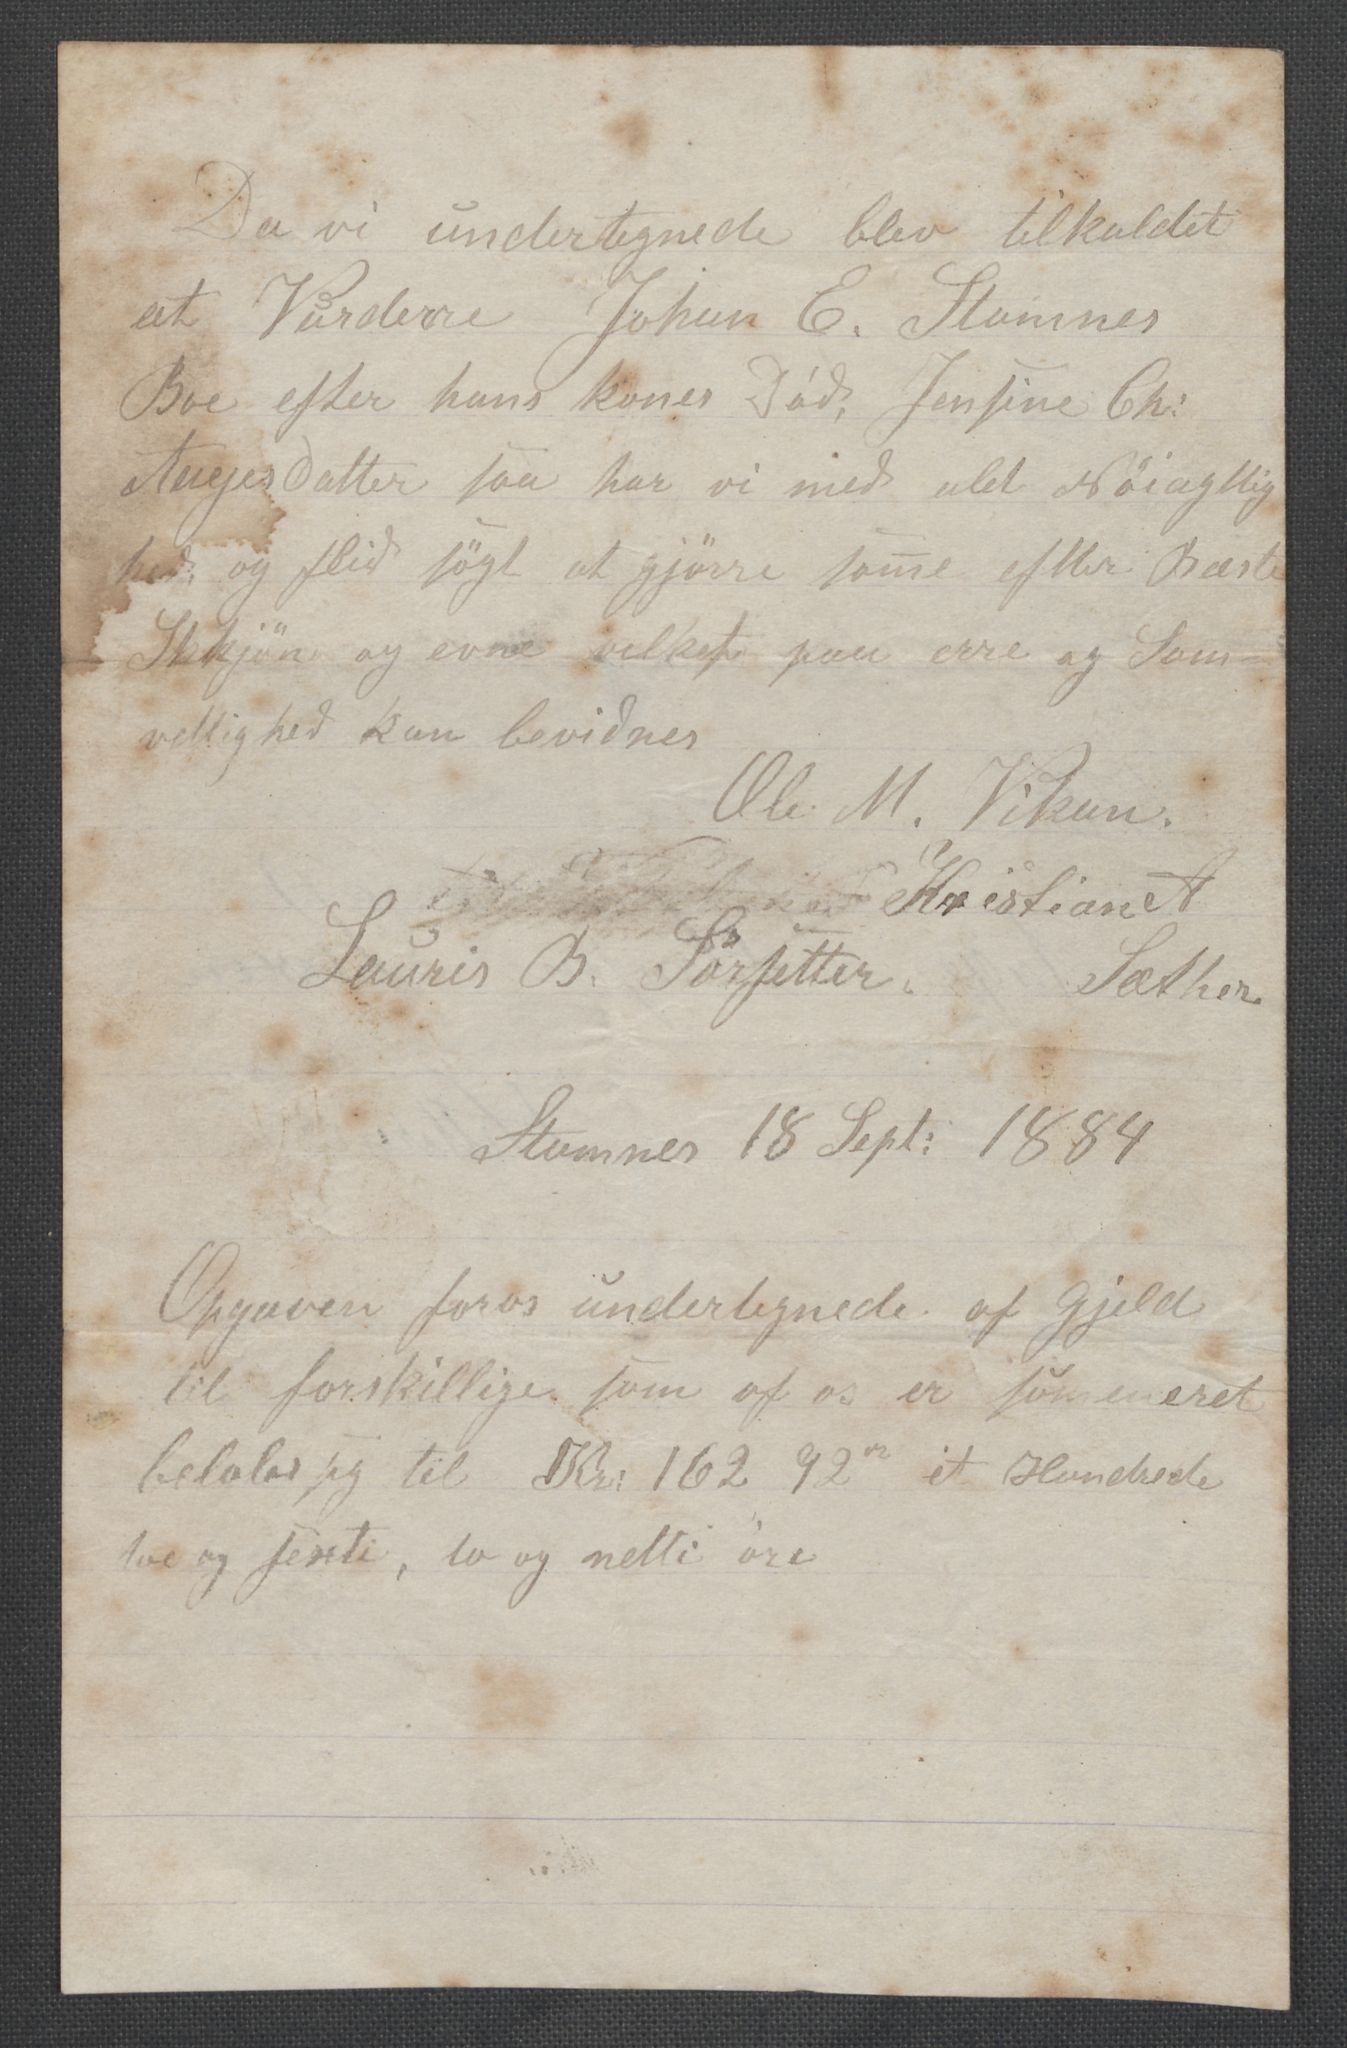 Da vi undertegnede blev tilkaldet
at Vurderre Johan E. Stamnes
Boe efter hans kones Död, Jensine Ch:
Datter saa har vi med alt Nöiagtlig
hed, og flid sögt at gjörre same efter Bæste
Skkjön og evne velket paa erre og Sam-
vettighed kan bevidnes
Ole M. Vikan.
Kristian A
Lauris B. Sörsetter. Sæther
Stamnes 18 Sept: 1884
Opgaven foros undertegnede af Gjeld
til forskillige som af os er sömeneret
belober sig til Kr: 162 92 et Hundrede
toe og sexti, to og netti öre